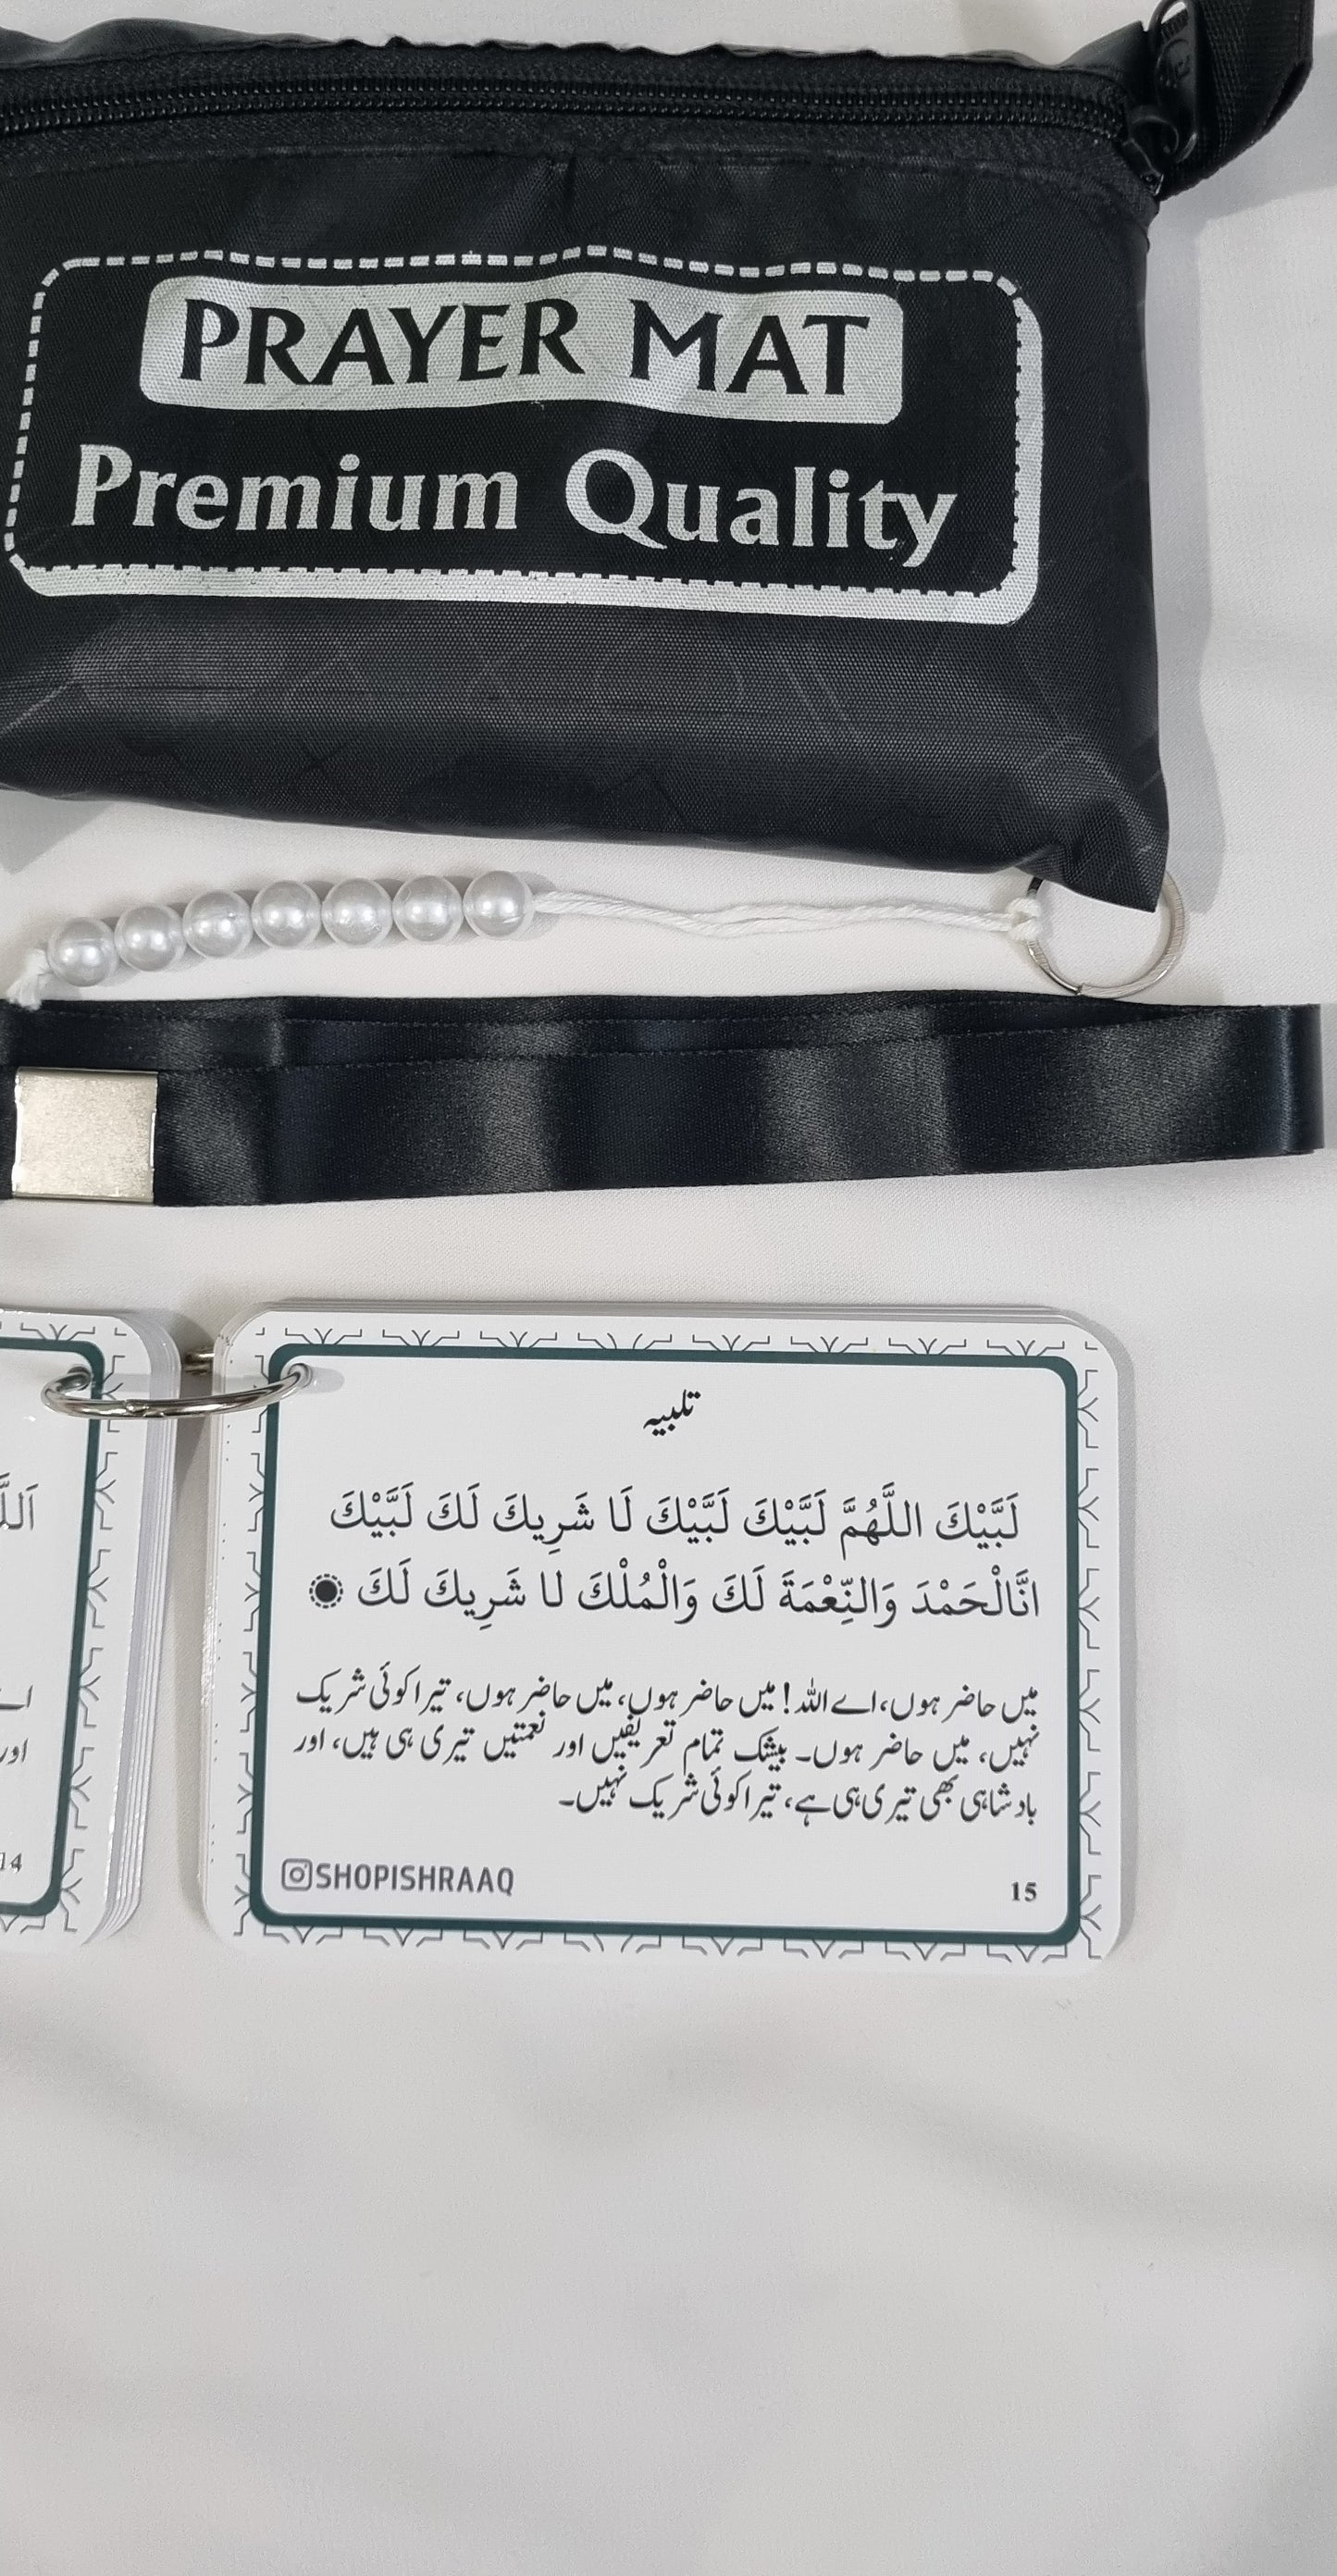 PRAYER MAT
Premium Quality
تلبیہ
لَبَّيْكَ اللَّهُمَّ لَبَّيْكَ لَبَّيْكَ لَا شَرِيكَ لَكَ لَبَّيْكَ
انَّالْحَمْدَ وَالنِّعْمَةَ لَكَ وَالْمُلْكَ لا شَرِيكَ لَكَ
میں حاضر ہوں، اے اللہ! میں حاضر ہوں، میں حاضر ہوں، تیرا کوئی شریک
نہیں، میں حاضر ہوں۔ بیشک تمام تعریفیں اور نعمتیں تیری ہی ہیں، اور
بادشاہی بھی تیری ہی ہے، تیرا کوئی شریک نہیں۔
SHOPISHRAAQ
15
اور
14